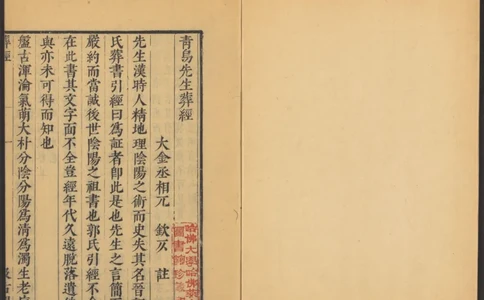 青烏先生葬經
大金丞相兀 欽仄 註
先生漢時人精地理陰陽之術而史失其名晉
氏葬書引經曰爲証者卽此是也先生之言簡
嚴約而當誠後世陰陽之祖書也郭氏引經不全
在此書其文字面不全豈經年代久遠脫落遺
與亦未可得而知也
盤古渾淪氣萌大朴分陰分陽爲清爲濁生老
葬經
汲古
哈佛大學
圖書館珍藏